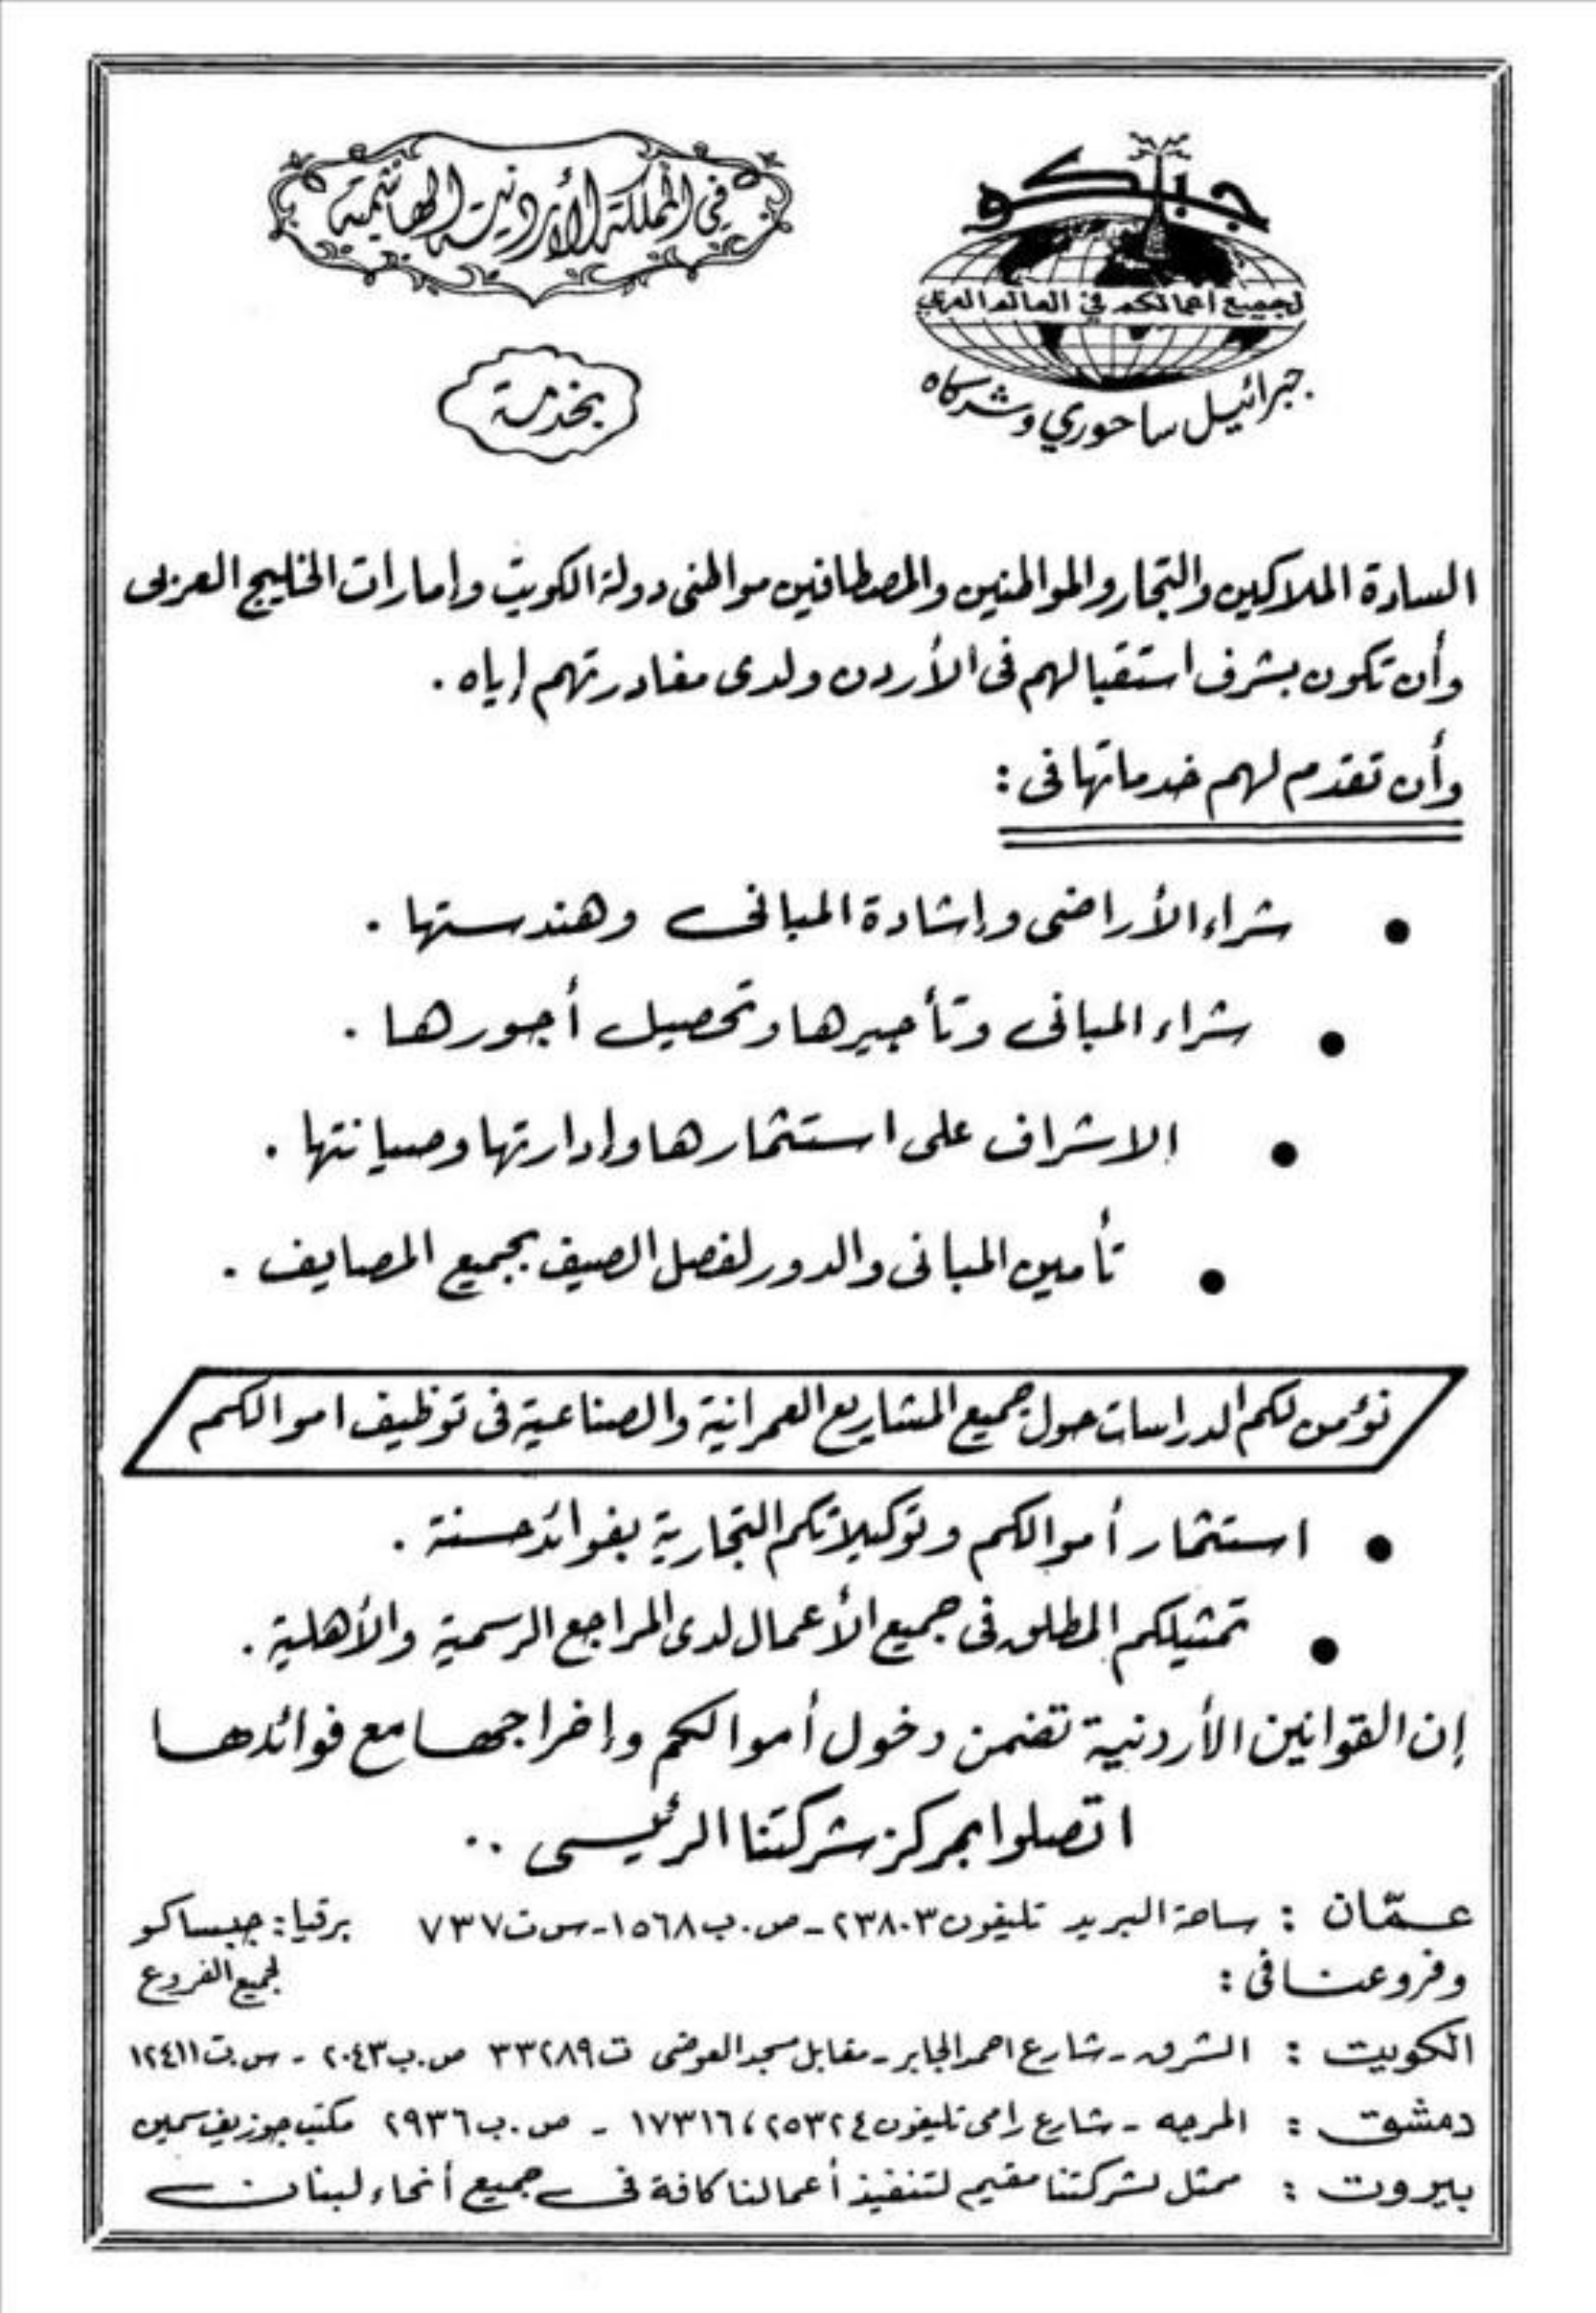 جبكو
لجميع اعمالكم في العالم العربي
جبرائيل ساحوري وشركاه
في المملكة الأردنية الهاشمية
بخدمة
السادة الملاكين والتجار والمواطنين والمصطافين مواطنى دولة الكويت وإمارات الخليج العربى
وأن تكون بشرف استقبالهم فى الأردن ولدى مغادرتهم إياه .
وأن تقدم لهم خدماتها فى :
• شراء الأراضى وإشادة المبانى وهندستها .
• شراء المبانى وتأجيرها وتحصيل أجورها .
• الاشراف على استثمارها وإدارتها وصيانتها .
• تأمين المبانى والدور لفصل الصيف بجميع المصايف .
نؤمن لكم الدراسات حول جميع المشاريع العمرانية والصناعية فى توظيف اموالكم
• استثمار أموالكم وتوكيلاتكم التجارية بفوائد حسنة .
• تمثيلكم المطلق فى جميع الأعمال لدى المراجع الرسمية والأهلية .
إن القوانين الأردنية تضمن دخول أموالكم وإخراجها مع فوائدها
اتصلوا بمركز شركتنا الرئيسى ..
عمّان : ساحة البريد تليفون ٢٣٨٠٣ - ص.ب ١٥٦٨ - س ت ٧٣٧ برقيا : جبساكو
وفروعنا فى : لجميع الفروع
الكويت : الشرق - شارع احمد الجابر - مقابل مسجد العوضى ت ٣٣٢٨٩ ص.ب ٢٠٤٣ - س.ت ١٢٤١١
دمشق : المرجه - شارع رامى تليفون ٢٥٣٢٤ ، ١٧٣١٦ - ص.ب ٢٩٣٦ مكتب جوزيف سمين
بيروت : ممثل لشركتنا مقيم لتنفيذ أعمالنا كافة فى جميع أنحاء لبنان